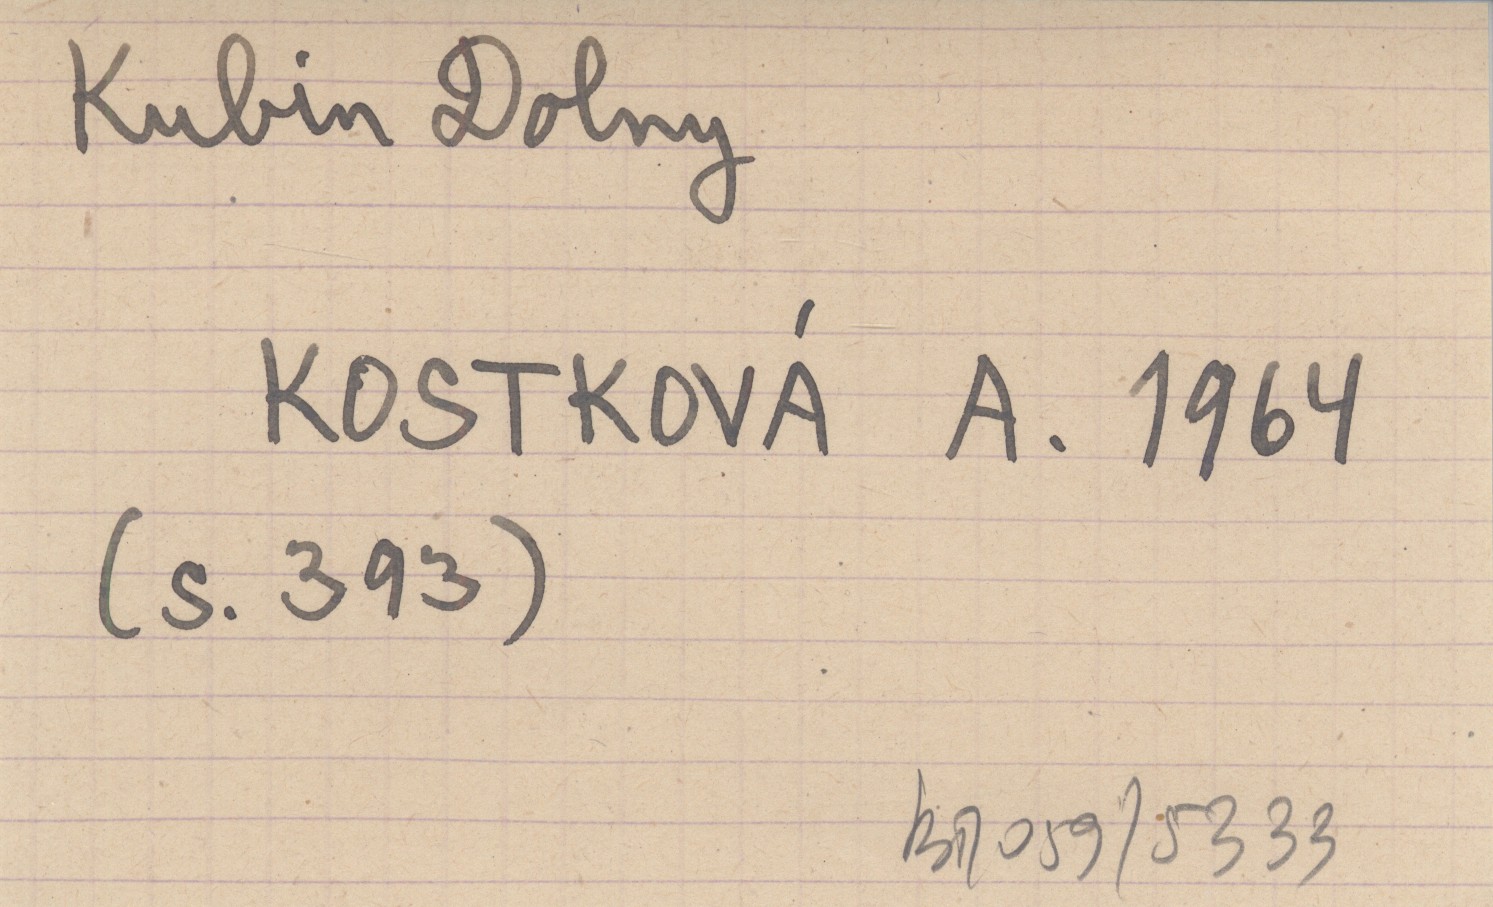 Kubin Dolny
KOSTKOVÁ A. 1964
(s. 393)
059/5333